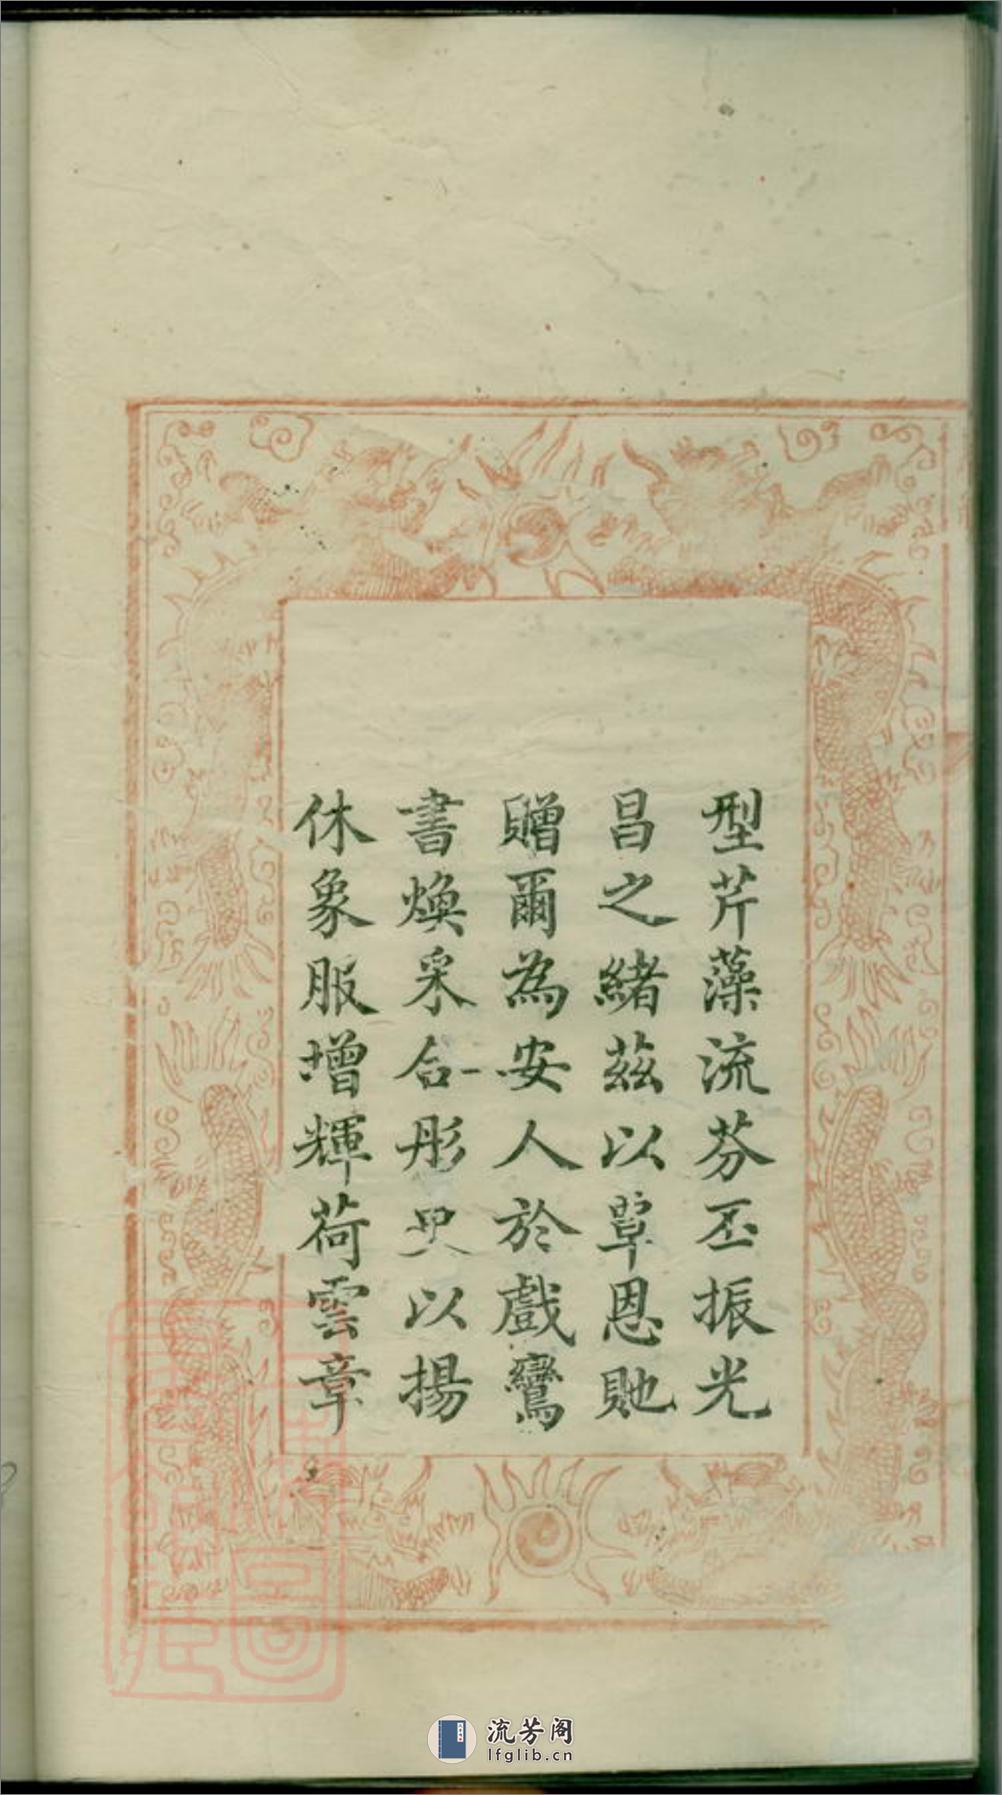 型芹藻流芬丕振光
昌之緒茲以覃恩貤
贈爾為安人於戲鸞
書煥采合彤史以揚
休象服增輝荷雲章
流芳阁
lfglib.cn